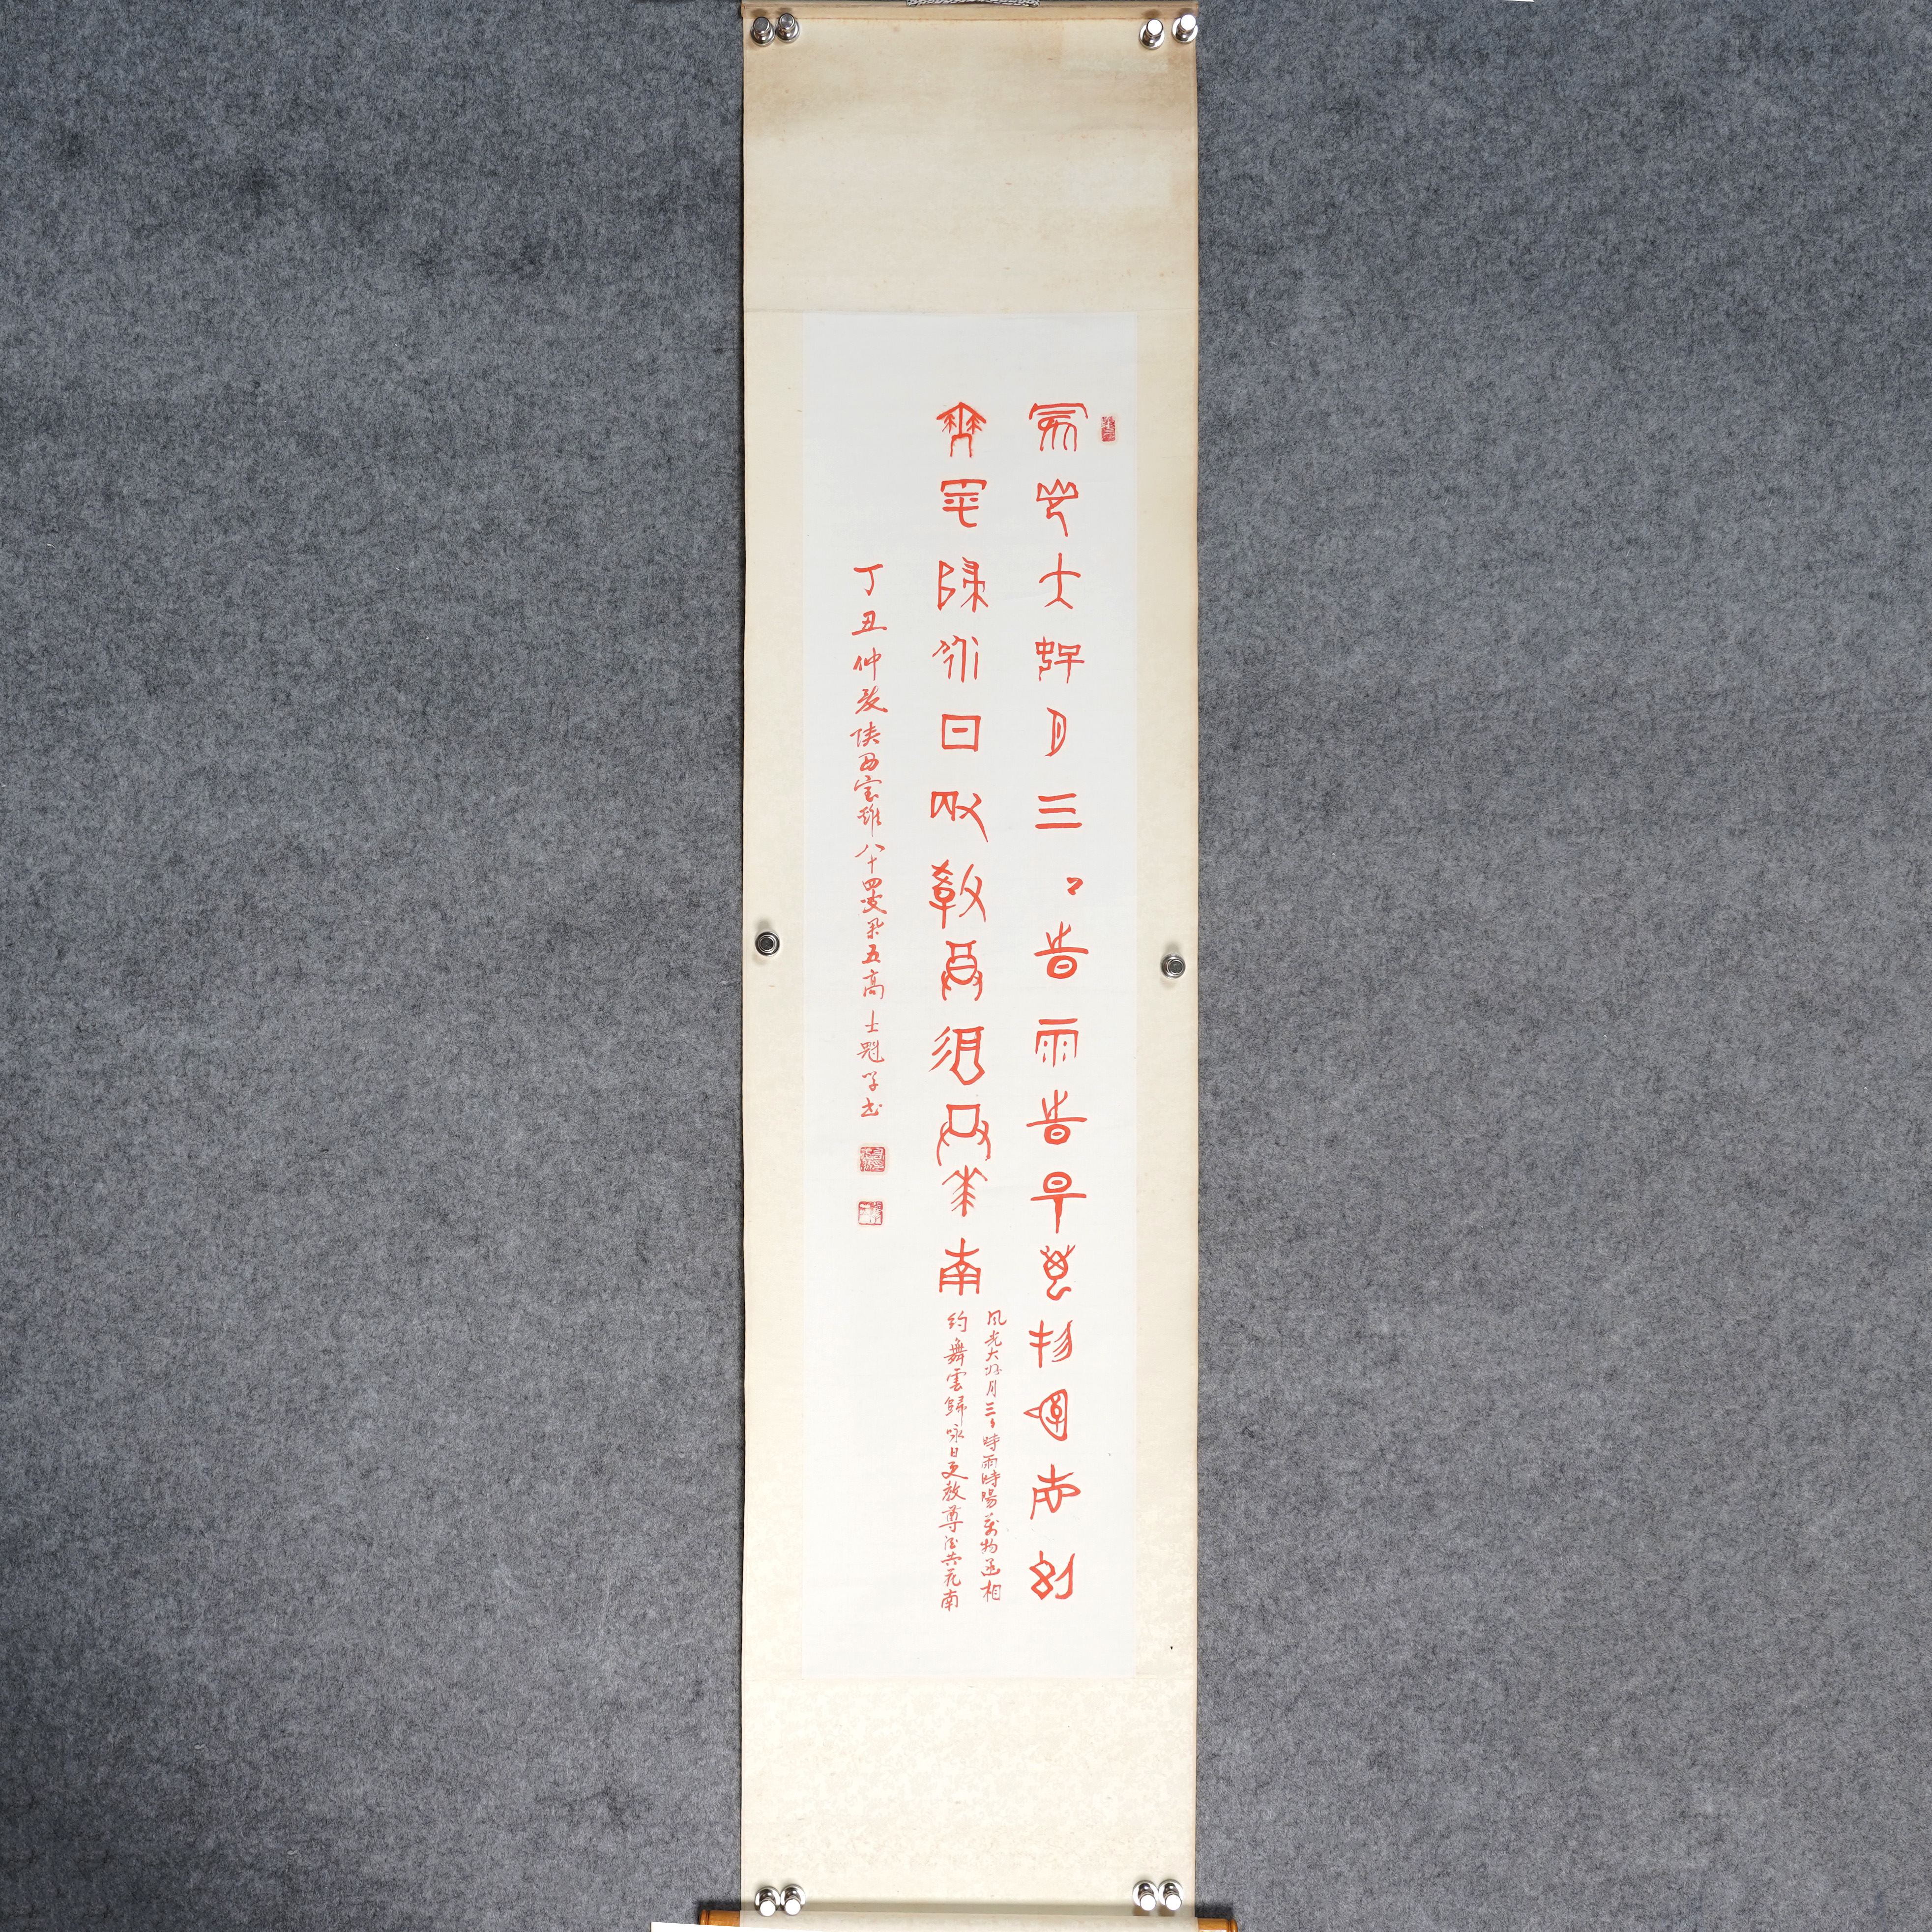 風光大好月三〻時雨時陽萬物函相約
舞雩歸詠日更教尊酒共花南
風光大好月三〻時雨時陽萬物函相
約舞雲歸咏日更教尊酒共花南
丁丑仲夏陕西宝雞八十四叟五高士魁学书